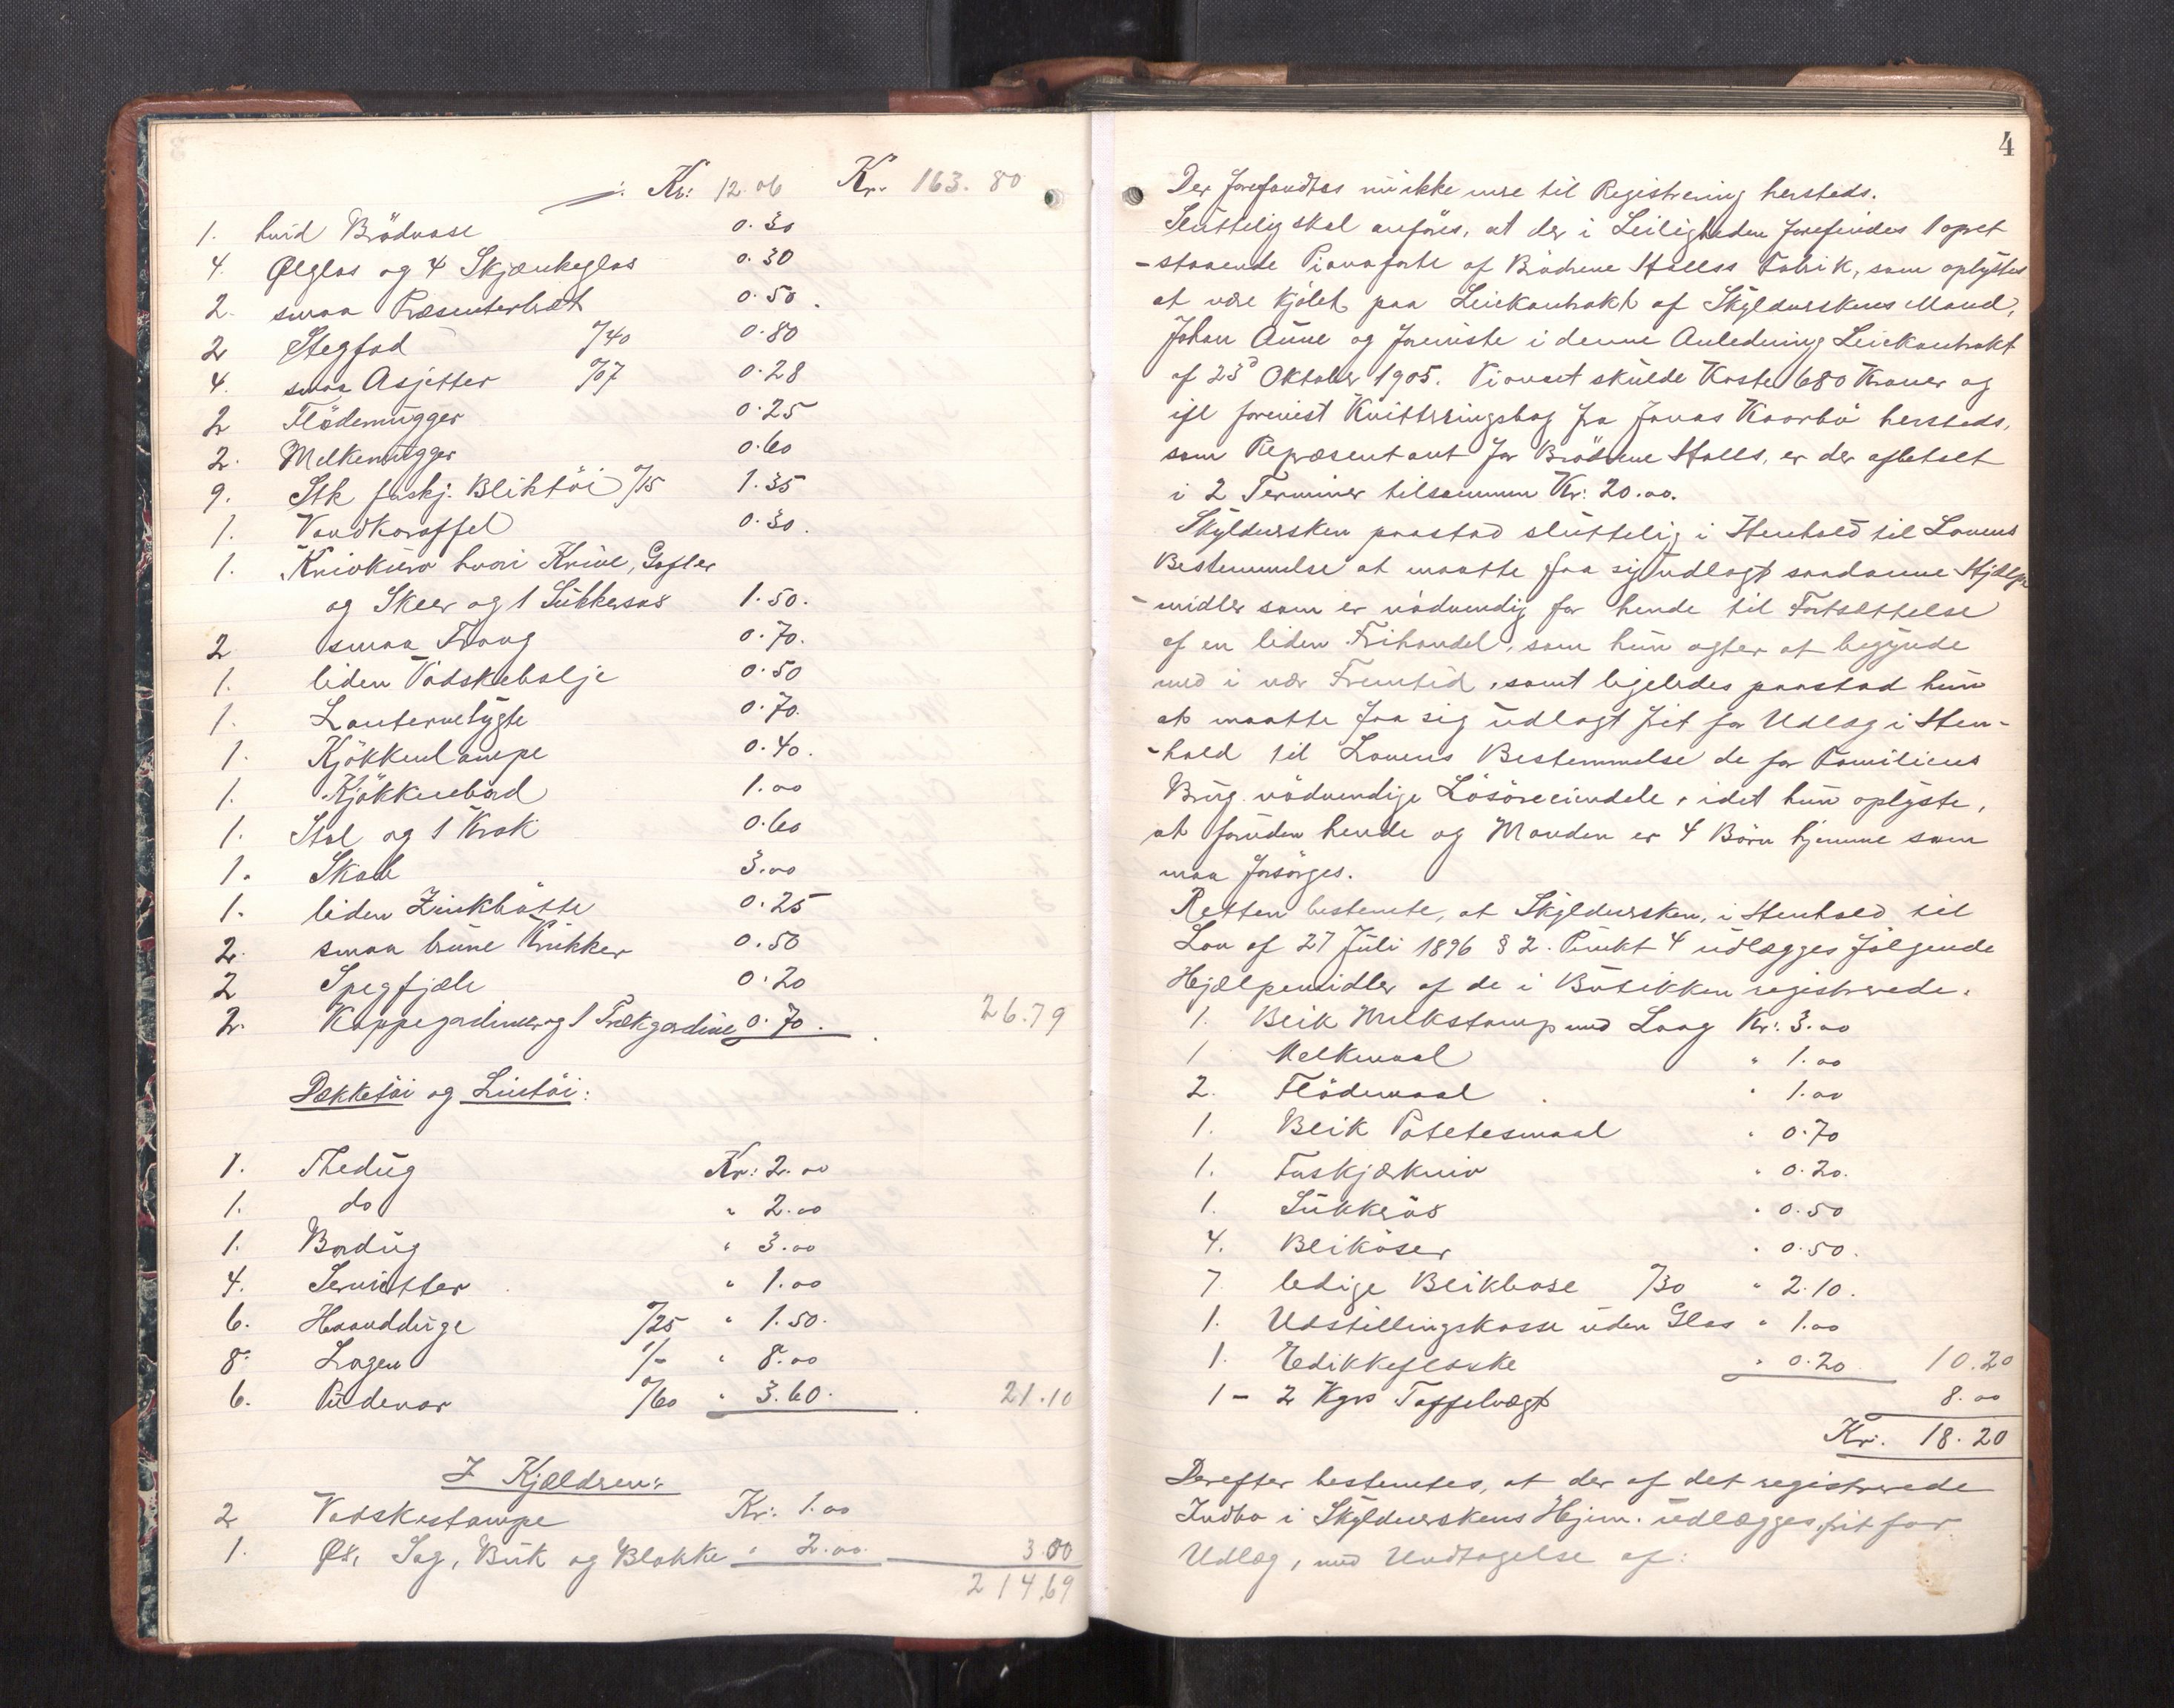 Kr: 12.06 Kr. 163.80
1. hvid Brödvase 0.30
4. Ølglas og 4 Skjænkeglas 0.30
2. smaa Præsenterbræt 0.50.
2 Stegfad /40 0.80
4. smaa Asjetter /07 0.28
2 Flödemugger 0.25
2. Melkemugger 0.60
9. Stk forskj. Bliktöi /15 1.35
1. Vandkaraffel 0.30.
1. Knivkurv hvori Knive, Gafler
og Skeer og 1 Sukkersax 1.50.
2 smaa Traug 0.70.
1. liden Vadskebalje 0.50
1. Lanternelygte 0.70.
1. Kjökkenlampe 0.40.
1. Kjökkenbord 1.00
1. Stol og 1 Krak 0.60
1. Skab 3.00
1. liden Zinkbötte 0.25
2. smaa brune Krukker 0.50
2 Spegfjæle 0.20
2. Kappegardiner og 1 Trækgardine 0.70. 26.79
Dækketöi og Lintöi:
1. Thedug Kr: 2.00
1. do " 2.00
1. Bordug " 3.00
4. Servietter " 1.00
6. Haandduge /25 " 1.50.
8. Lagen 1/- " 8.00
6. Pudevar /60 " 3.60. 21.10
I Kjældren:
2 Vadskestampe Kr: 1.00
1. Øx, Sag, Buk og Blokke " 2.00. 3.00
214.69
4
Der forefandtes nu ikke mere til Registrering hersteds.
Sluttelig skal anföres, at der i Leiligheden forefindes 1 opret
-staaende Pianoforte af Brödrene Halls Fabrik, som oplystes
at være kjöbt paa Leiekontrakt af Skyldnerskens Mand,
Johan Aune og foreviste i denne Anledning Leiekontrakt
af 23d Oktober 1905. Pianoet skulde koste 680 Kroner og
ifl forevist Kvitteringsbog fra Jonas Kaarbö hersteds,
som Repræsentant for Brödrene Halls, er der afbetalt
i 2 Terminer tilsammen Kr: 20.00.
Skyldnersken paastod sluttelig i Henhold til Lovens
Bestemmelse at maatte faa sig udlagt saadanne Hjælpe
-midler som er nödvendig for hende til Fortsættelse
af en liden Frihandel, som hun agter at begynde
med i nær Fremtid, samt ligeledes paastod hun
at maatte faa sig udlagt frit for Udlæg i Hen-
-hold til Lovens Bestemmelse de for Familiens
Brug nödvendige Lösöreeiendele, idet hun oplyste,
at foruden hende og Manden er 4 Börn hjemme som
maa forsörges.
Retten bestemte, at Skyldnersken, i Henhold til
Lov af 27 Juli 1896 § 2. Punkt 4 udlægges fölgende
Hjælpemidler af de i Butikken registrerede.
1. Blik Melkstamp med Laag Kr: 3.00
1 Melkemaal " 1.00
2. Flödemaal " 1.00
1. Blik Potetesmaal " 0.70
1. Faskjærkniv " 0.20.
1. Sukkerös " 0.50
4. Bliköser " 0.50.
7 ledige Blikbose /30 " 2.10.
1. Udstillingskasse uden Glas " 1.00
1. Edikkeflaske " 0.20 10.20
1 - 2 Kgrs Taffelvægt 8.00
Kr. 18.20
Derefter bestemtes, at der af det registrerede
Indbo i Skyldnerskens Hjem. udlægges, frit for
Udlæg, med Undtagelse af: